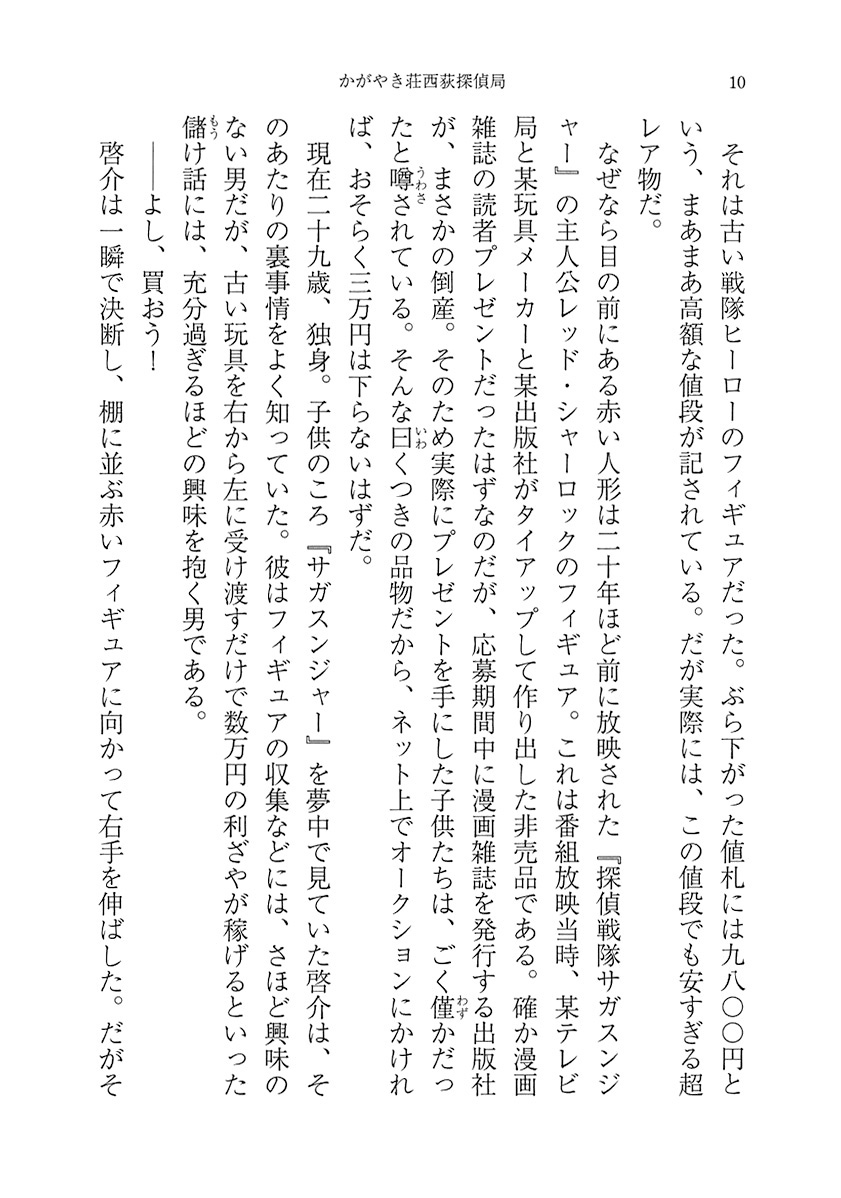 かがやき荘西荻探偵局
10
それは古い戦隊ヒーローのフィギュアだった。ぶら下がった値札には九八〇〇円と
いう、まあまあ高額な値段が記されている。だが実際には、この値段でも安すぎる超
レア物だ。
なぜなら目の前にある赤い人形は二十年ほど前に放映された『探偵戦隊サガスンジ
ャー』の主人公レッド・シャーロックのフィギュア。これは番組放映当時、某テレビ
局と某玩具メーカーと某出版社がタイアップして作り出した非売品である。確か漫画
雑誌の読者プレゼントだったはずなのだが、応募期間中に漫画雑誌を発行する出版社
が、まさかの倒産。そのため実際にプレゼントを手にした子供たちは、ごく僅かだっ
たと噂されている。そんな曰くつきの品物だから、ネット上でオークションにかけれ
ば、おそらく三万円は下らないはずだ。
現在二十九歳、独身。子供のころ『サガスンジャー』を夢中で見ていた啓介は、そ
のあたりの裏事情をよく知っていた。彼はフィギュアの収集などには、さほど興味の
ない男だが、古い玩具を右から左に受け渡すだけで数万円の利ざやが稼げるといった
儲け話には、充分過ぎるほどの興味を抱く男である。
――よし、買おう！
啓介は一瞬で決断し、棚に並ぶ赤いフィギュアに向かって右手を伸ばした。だがそ